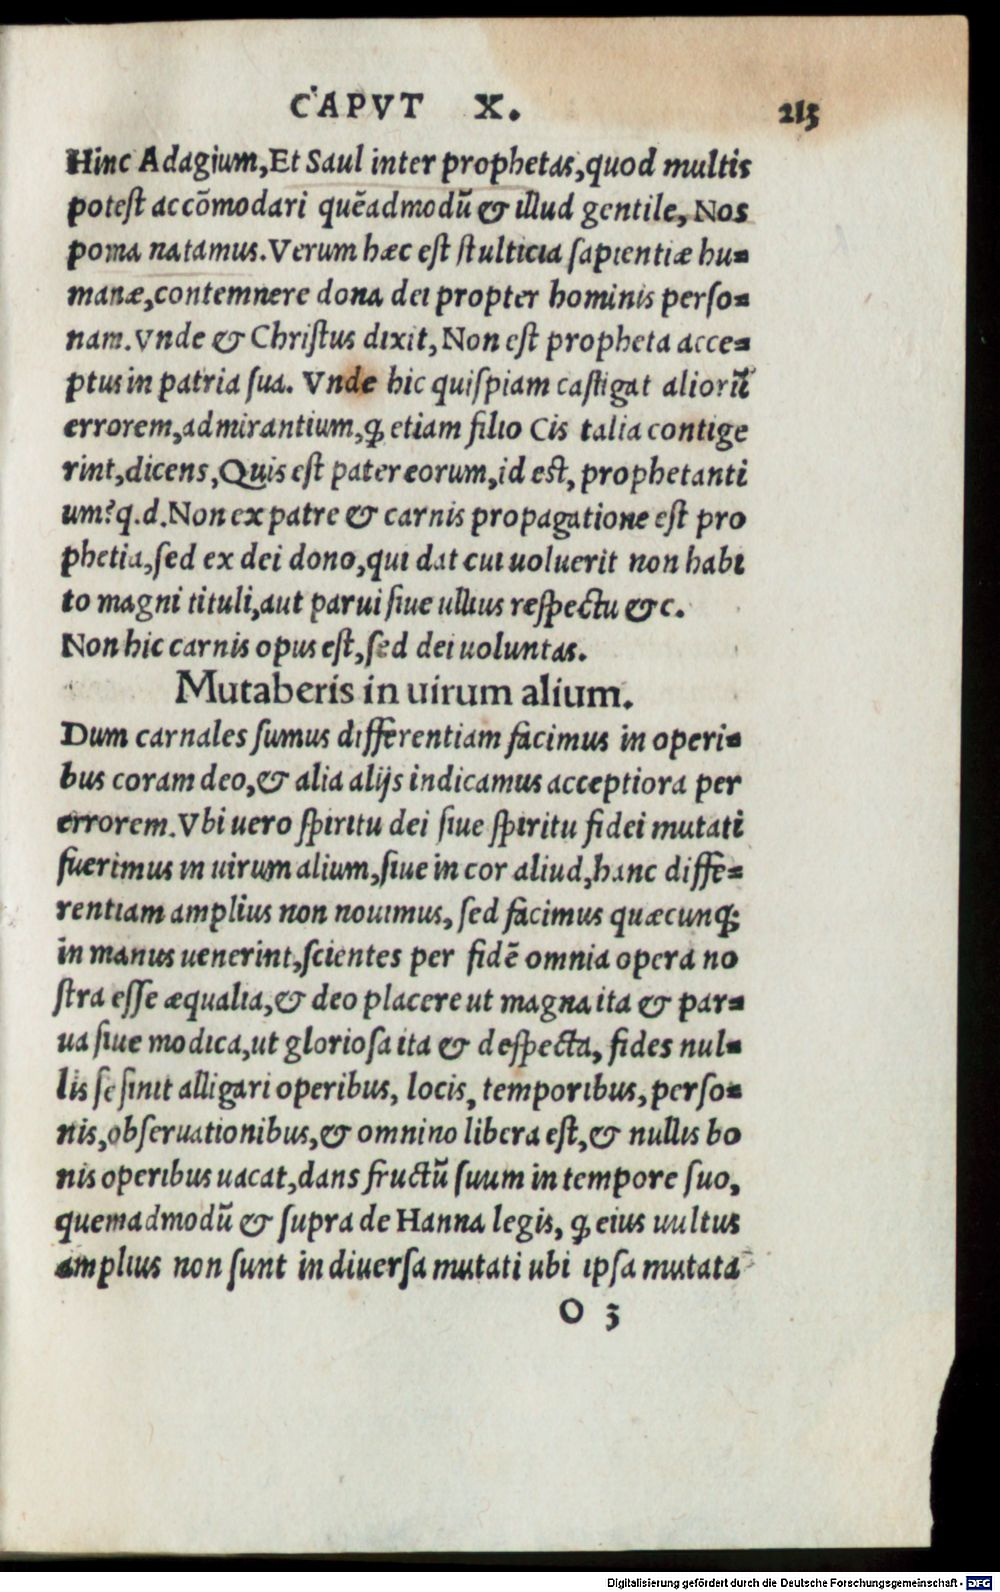 CAPVT X. 213
Hinc Adagium, Et Saul inter prophetas, quod multis
potest accõmodari quẽadmodũ & illud gentile, Nos
poma natamus. Verum hæc est stulticia sapientiæ hu=
manæ, contemnere dona dei propter hominis perso=
nam. Vnde & Christus dixit, Non est propheta acce=
ptus in patria sua. Vnde hic quispiam castigat aliorũ
errorem, admirantium, ꝙ etiam filio Cis talia contige
rint, dicens, Quis est pater eorum, id est, prophetanti
um? q.d. Non ex patre & carnis propagatione est pro
phetia, sed ex dei dono, qui dat cui uoluerit non habi
to magni tituli, aut parui siue ullius respectu &c.
Non hic carnis opus est, sed dei uoluntas.
Mutaberis in uirum alium.
Dum carnales sumus differentiam facimus in operi=
bus coram deo, & alia alijs indicamus acceptiora per
errorem. Vbi uero spiritu dei siue spiritu fidei mutati
fuerimus in uirum alium, siue in cor aliud, hanc diffe=
rentiam amplius non nouimus, sed facimus quæcunq;
in manus uenerint, scientes per fidẽ omnia opera no
stra esse æqualia, & deo placere ut magna ita & par=
ua siue modica, ut gloriosa ita & despecta, fides nul=
lis se sinit alligari operibus, locis, temporibus, perso=
nis, obseruationibus, & omnino libera est, & nullis bo
nis operibus uacat, dans fructũ suum in tempore suo,
quemadmodũ & supra de Hanna legis, ꝙ eius uultus
amplius non sunt in diuersa mutati ubi ipsa mutata
O 3
Digitalisierung gefördert durch die Deutsche Forschungsgemeinschaft - DFG